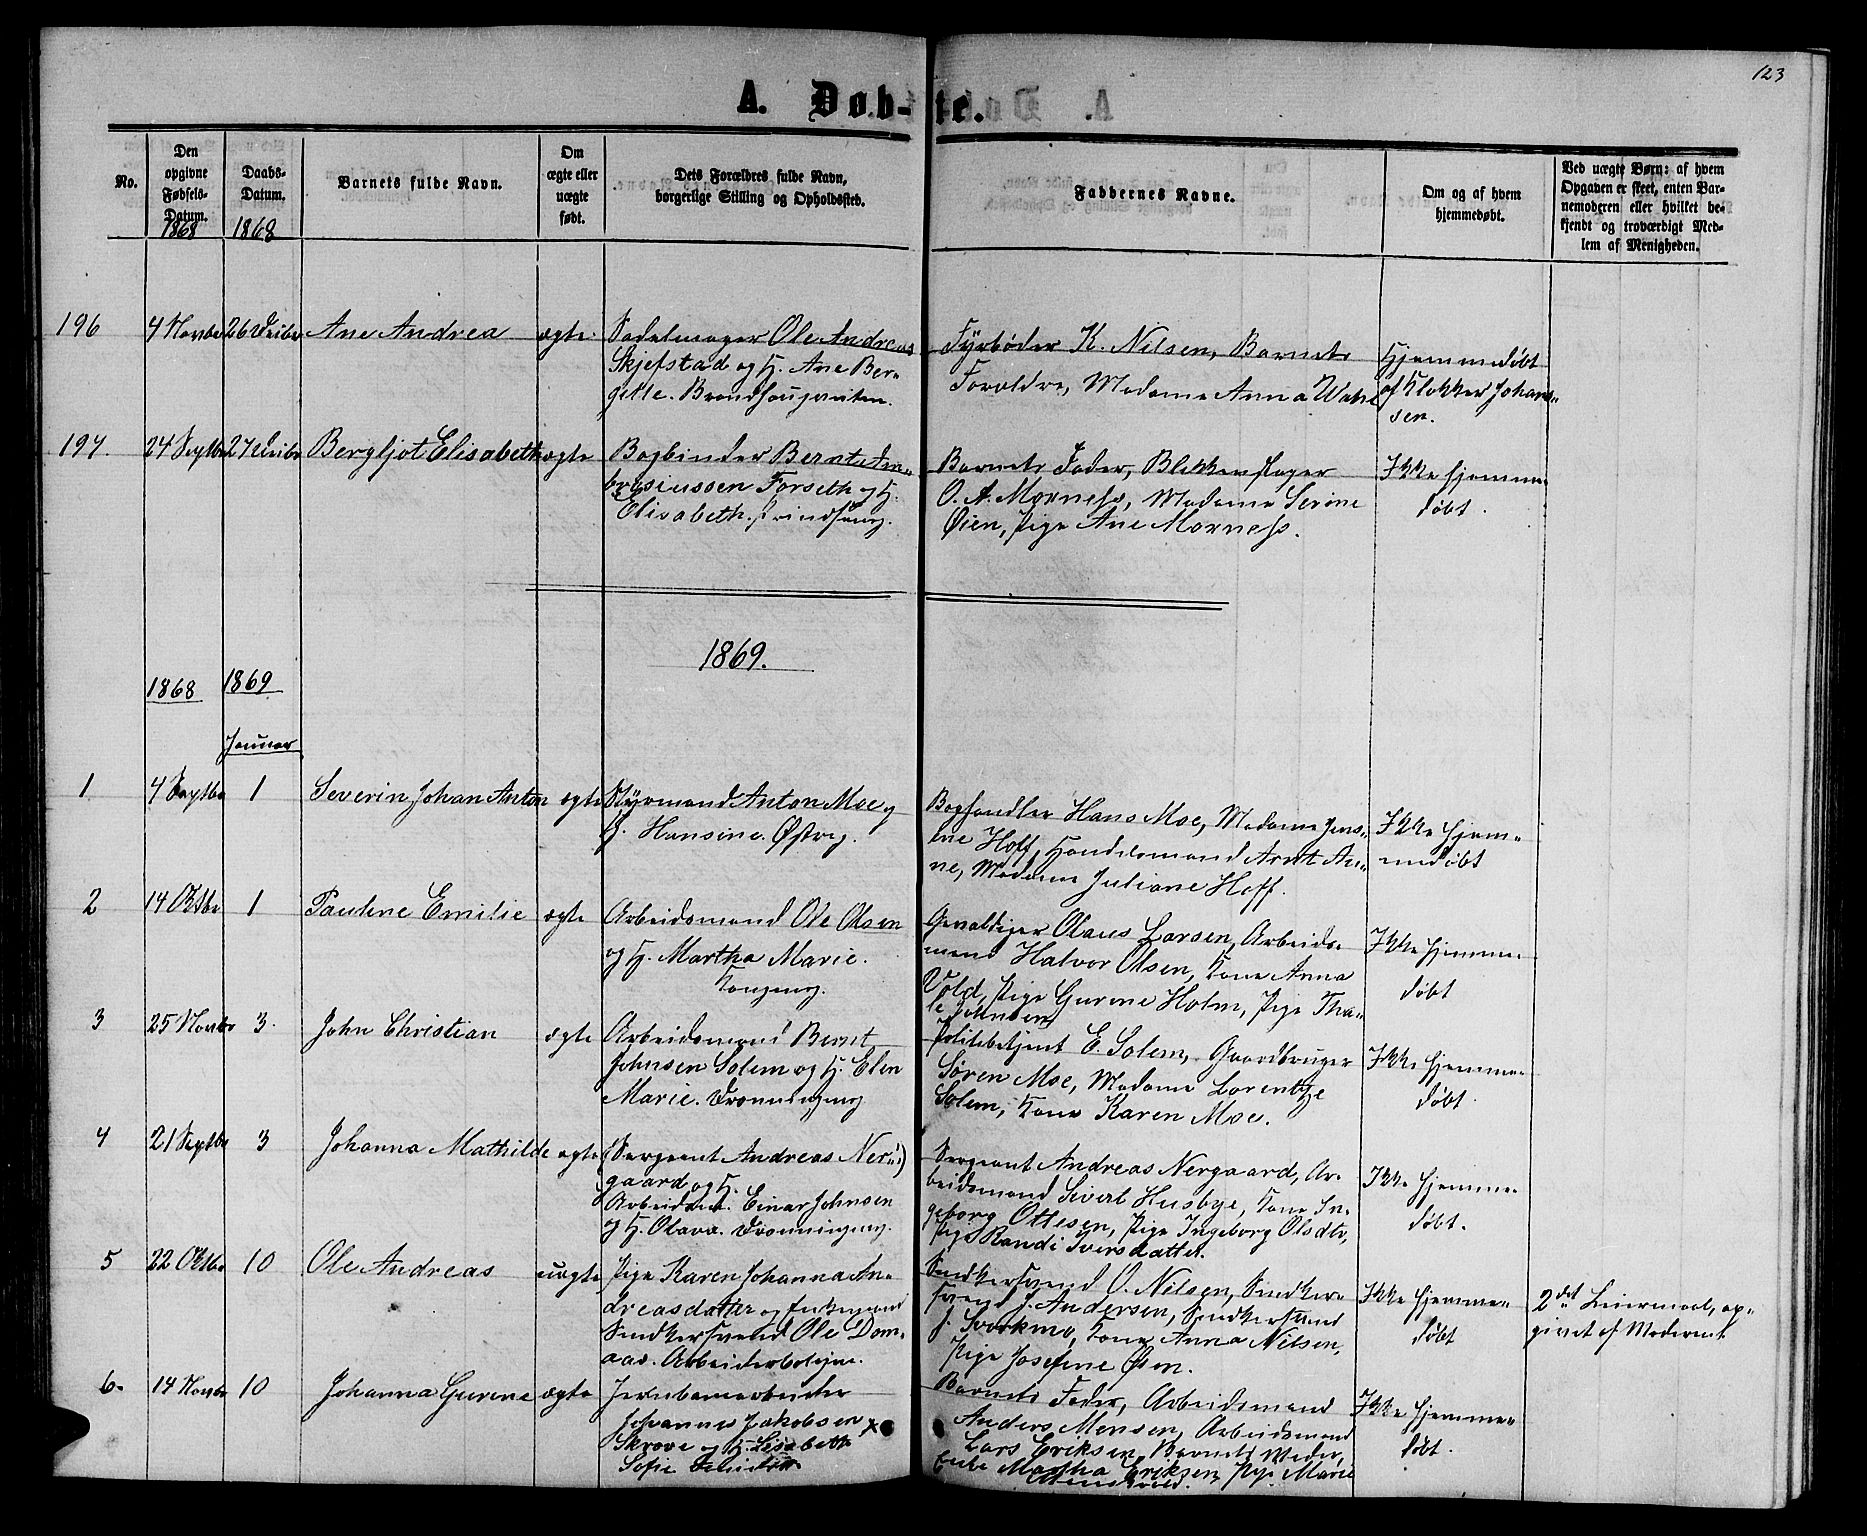 123
A. Døb-te.
No.
Den opgivne Fødsels-Datum.
1868
Daabs-Datum.
1868
Barnets fulde Navn.
Om ægte eller uægte født.
Dets Forældres fulde Navn, borgerlige Stilling og Opholdssted.
Faddernes Navne.
Om og af hvem hjemmedøbt.
Ved uægte Børn: af hvem Opgaven er skeet, enten Barnemoderen eller hvilket bekjendt og troværdigt Medlem af Menigheden.
196 4 Novbr 26 Decbr Ane Andrea ægte
Sadelmager Ole Andreas
Skjefstad og H. Ane Ber-
gitte.
Fyrbøder K. Nilsen, Barnets
Forældre, Madame Anna
Hjemmedøbt
af Klokker Johan-
sen.
197. 24 Septbr 27 Decbr Bergljot Elisabeth ægte
Bogbinder Bernt Am-
brosiussen Forseth og H.
Elisabeth.
Barnets Fader, Blikkenslager
O. A. Morness, Madame Serine
Øien, Pige Ane Morness.
Ikke hjemme-
døbt.
1869.
1868 1869
Januar
1 4 Septbr 1 Severin Johan Anton ægte
Styrmand Anton Moe og
H. Hansine. Østbyg.
Boghandler Hans Moe, Madame Jen-
sine Hoff, Handelsmand Arnt An-
ne, Madame Juliane Hoff.
Ikke hjem-
medøbt
2 14 Oktbr 1 Pauline Emilie ægte
Arbeidsmand Ole Olsen
og H. Martha Marie.
Kongensg.
Gevaldiger Olaus Larsen, Arbeids-
mand Halvor Olsen, Kone Anna
Vold, Pige Gurine Holm, Pige Tha-
le Johnsen
Ikke hjemme-
døbt
3 25 Novbr 3. John Christian ægte
Arbeidsmand Bernt
Johnsen Solem og H. Elen
Marie. Dronningensg.
Politibetjent E. Solem, Gaardbruger
Søren Moe, Madame Lorentze
Solem, Kone Karen Moe.
Ikke hjemme-
døbt.
4 21 Septbr 3 Johanna Mathilde ægte
(Sergeant Andreas Ner-)
gaard og H.
Arbeidsm. Einar Johnsen
og H. Olava. Dronningensg.
Sergeant Andreas Nergaard, Ar-
beidsmand Sivert Husbye, Kone In-
geborg Ottesen, Pige Ingeborg Olsdtr,
Pige Randi Iversdatter.
Ikke hjemme-
døbt.
5 22 Oktbr 10 Ole Andreas uægte
Pige Karen Johanna An-
dreasdatter og Enkemand
Snedkersvend Ole Dom-
aas. Arbeiderboligen.
Snedkersvend O. Nilsen, Snedker-
svend J. Andersen, Snedkersvend
J. Svorkmo, Kone Anna Nilsen,
Pige Josefine Øien.
Ikke hjemme-
døbt
2det Leiermaal, op-
givet af Moderen
6. 14 Novbr 10 Johanna Gurine ægte
Jernbanearbeider
Johannes Jakobsen x
Skrove og H. Lisabeth
Sofie
Barnets Fader, Arbeidsmand
Anders Monsen, Arbeidsmand
Lars Eriksen, Barnets Moder,
Enke Martha Eriksen, Pige Marie
Ikke hjemme-
døbt.